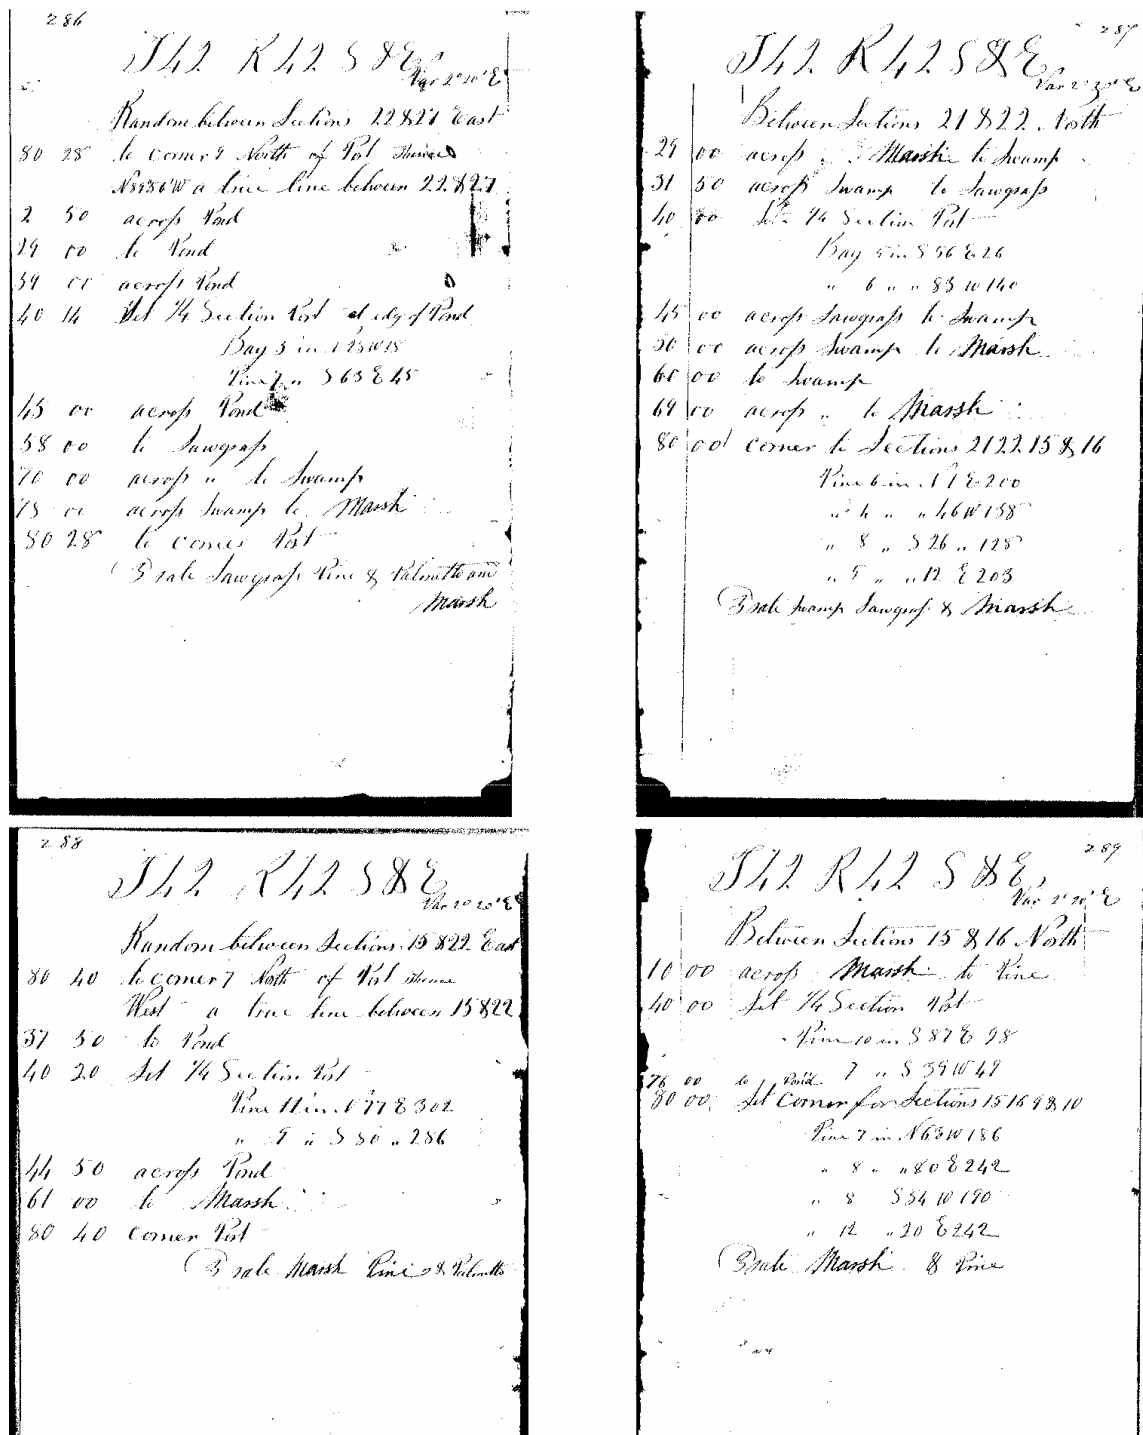 286
T42 R42 S & E
Var 2°20' E
Random between Sections 22 & 27 East
80 28 to corner 9 North of Post thence
N89°56'W a true line between 22 & 27
2 50 across Pond
29 00 to Pond
39 00 across Pond
40 14 Set 1/4 Section Post at edg of Pond
Bay 3 in N 23 W 18
Pine 7 " S 63 E 45
45 00 across Pond
58 00 to Sawgrass
70 00 across " to Swamp
75 00 across Swamp to Marsh
80 28 to corner Post
3 rate Sawgrass Pine & Palmetto and
Marsh
287
T42 R42 S & E
Var 2°20' E
Between Sections 21 & 22 North
29 00 across Marsh to Swamp
31 50 across Swamp to Sawgrass
40 00 Set 1/4 Section Post
Bay 5 in S 56 E 26
" 6 " " 83 W 140
45 00 across Sawgrass to Swamp
50 00 across Swamp to Marsh
60 00 to Swamp
69 00 across " to Marsh
80 00 corner to Sections 21 22 15 & 16
Pine 6 in N 7 E 200
" 4 " " 46 W 158
" 8 " S 26 " 128
" 5 " " 12 E 203
3 rate Swamp Sawgrass & Marsh
288
T42 R42 S & E
Var 2°20' E
Random between Sections 15 & 22 East
80 40 to corner 7 North of Post thence
West a true line between 15 & 22
37 50 to Pond
40 20 Set 1/4 Section Post
Pine 11 in N 77 E 302
" 9 " S 80 " 286
44 50 across Pond
61 00 to Marsh
80 40 corner Post
3 rate Marsh Pine & Palmetto
289
T42 R42 S & E
Var 2°20' E
Between Sections 15 & 16 North
10 00 across Marsh to Pine
40 00 Set 1/4 Section Post
Pine 10 in S 87 E 98
7 " S 39 W 49
76 00 to Pond
80 00 Set Corner for Sections 15 16 9 & 10
Pine 7 in N 63 W 186
" 8 " " 80 E 242
" 8 S 34 W 190
" 12 " 20 E 242
3 rate Marsh & Pine